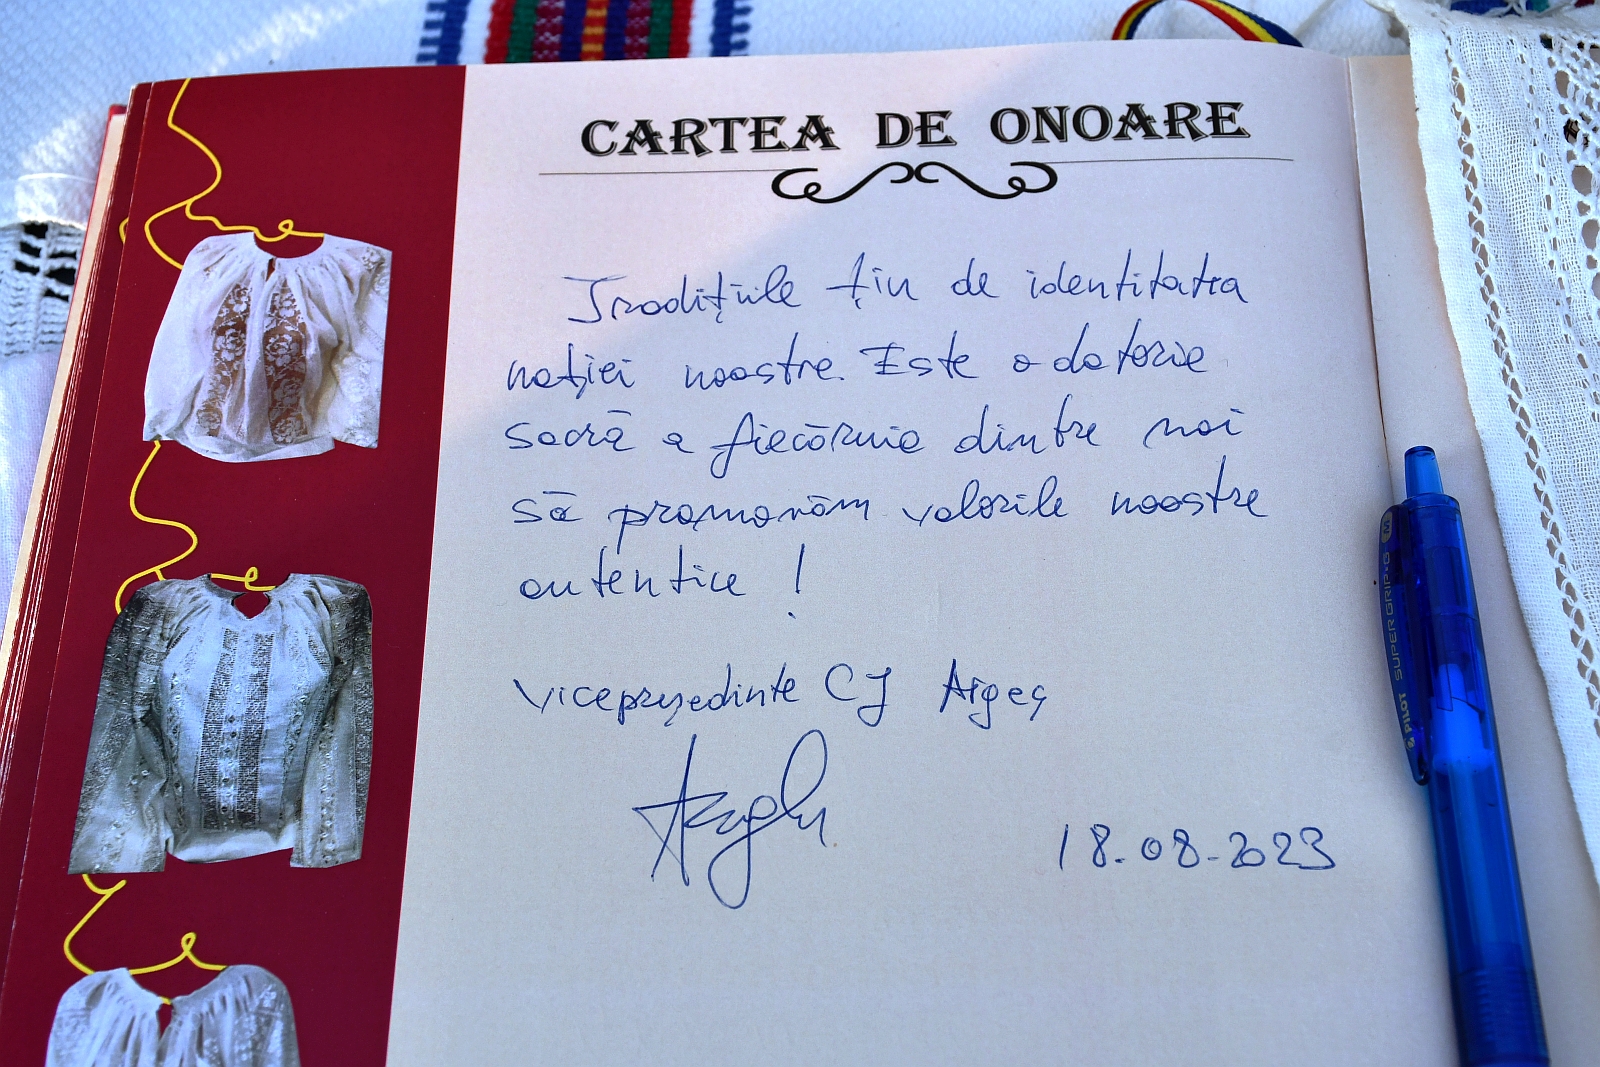 CARTEA DE ONOARE
Tradițiile țin de identitatea
nației noastre. Este o datorie
sacră a fiecăruia dintre noi
să promovăm valorile noastre
autentice !
Vicepreședinte CJ Argeș
18.08.2023
PILOT SUPER GRIP·G M